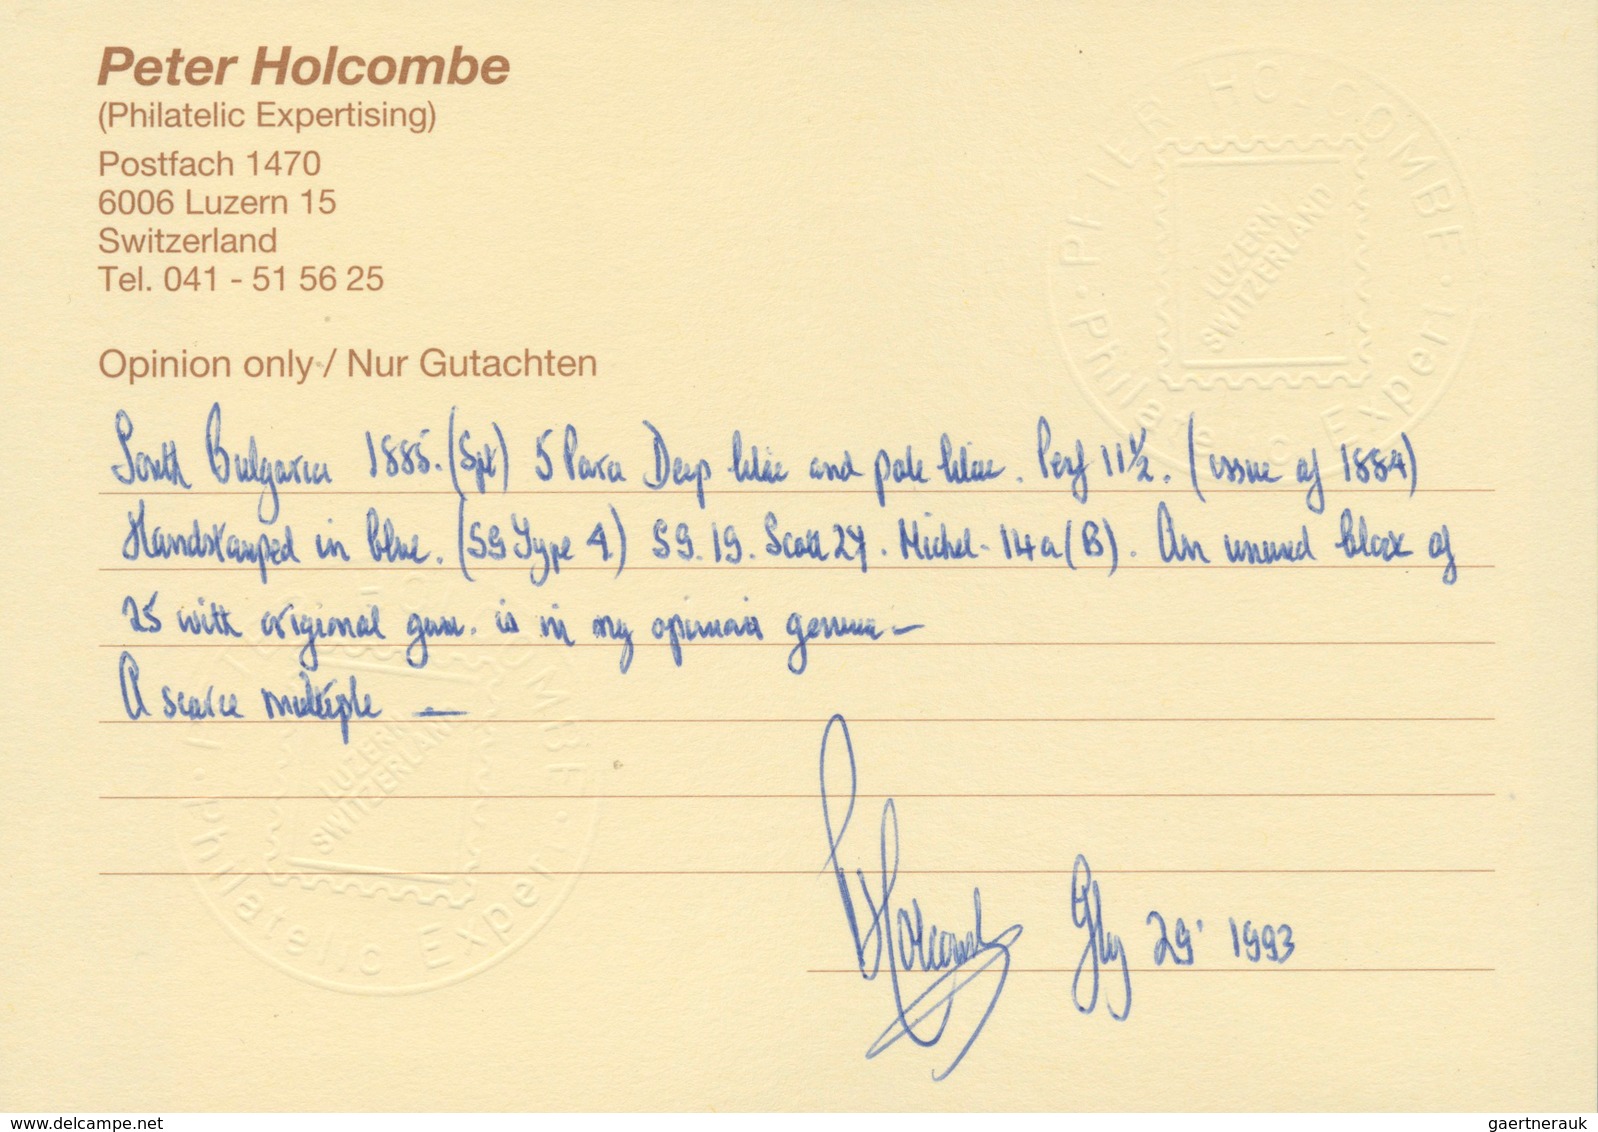 Peter Holcombe
(Philatelic Expertising)
Postfach 1470
6006 Luzern 15
Switzerland
Tel. 041 - 51 56 25
PETER HOLCOMBE
Philatelic Expert
LUZERN
SWITZERLAND
Opinion only / Nur Gutachten
South Bulgaria 1885. (Spt) 5 Para Deep lilac and pale lilac. Perf 11½. (issue of 1884)
Handstamped in blue. (SG Type 4) SG. 19. Scott 27. Michel - 14a (B). An unused block of
25 with original gum. is in my opinion genuine —
A scarce multiple —
PETER HOLCOMBE
LUZERN
SWITZERLAND
Philatelic Expert
P Holcombe 29 1993
www.delcampe.net
gaertnerauk